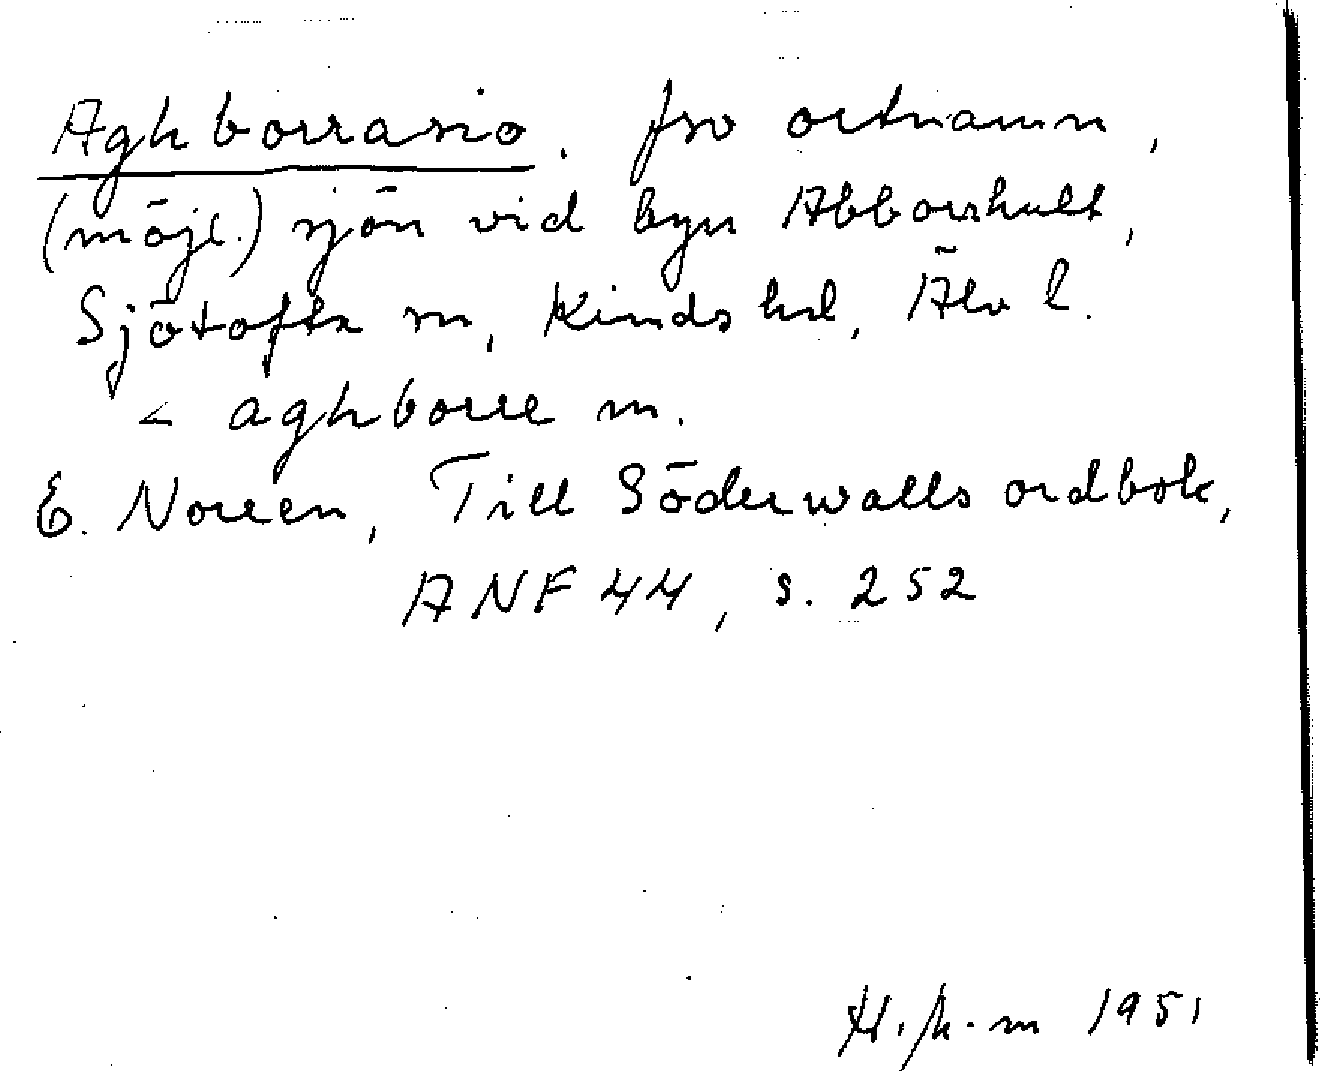 Aghborrasio. fsv ortnamn,
(möjl.) sjön vid byn Abborrhult,
Sjötofta sn, Kinds hd, Älv l.
< aghborre m.
E. Noreen, Till Söderwalls ordbok,
ANF 44, s. 252
1951